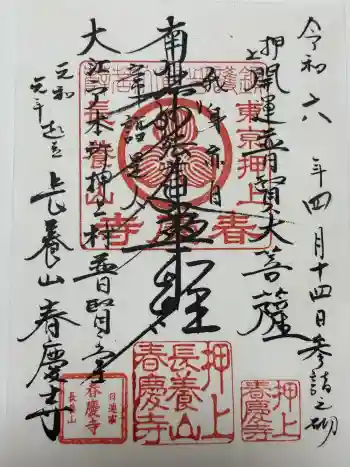 令和六年四月十四日参詣之砌
押上
開運普賢大菩薩
南無妙法蓮華経
大江戸本賛押上村普賢堂
元和元年起立
長養山春慶寺
東京押上
長養山
春慶寺
押上
長養山
春慶寺
押上
春慶寺
日蓮宗
春慶寺
長養山